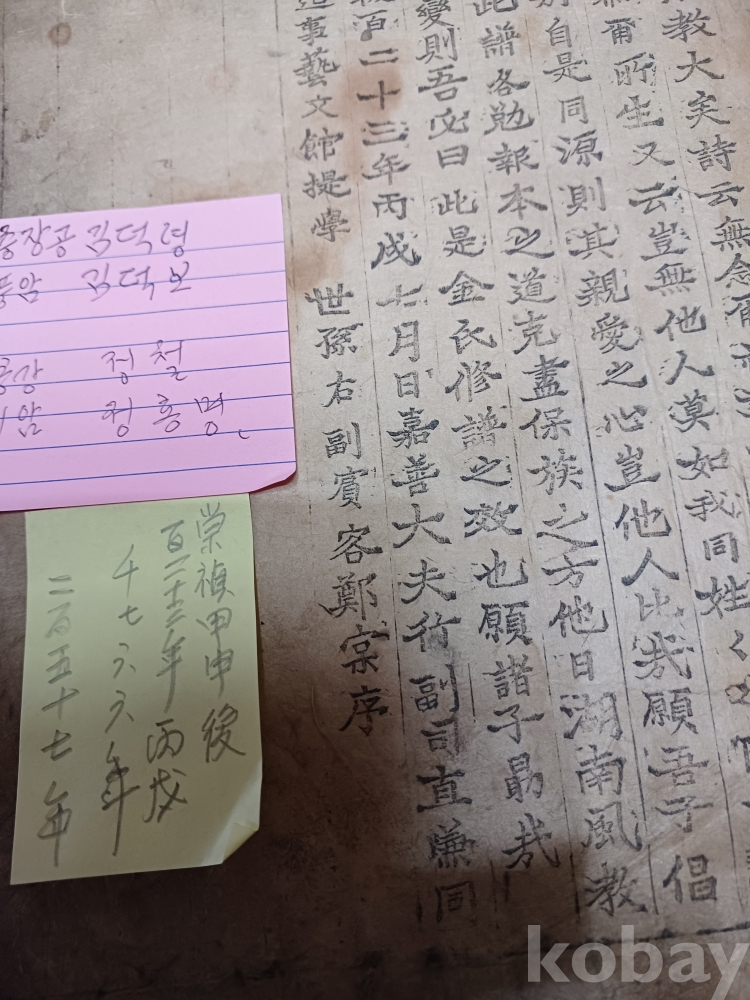 教大矣詩云無念
爾所生又云豈無他人莫如我同姓
自是同源則其親愛之心豈他人比哉願吾子倡
此譜各勉報本之道克盡保族之方他日湖南風教
變則吾必曰此是金氏修譜之效也願諸子勗哉
百二十三年丙戌七月日嘉善大夫行副司直兼同
事藝文館提學 世孫右副賓客鄭宲序
장공 김덕령
암 김덕보
강 정철
암 정홍명
崇禎甲申後
百二十三年 丙戌
千七六六年
二百五十七年
kobay